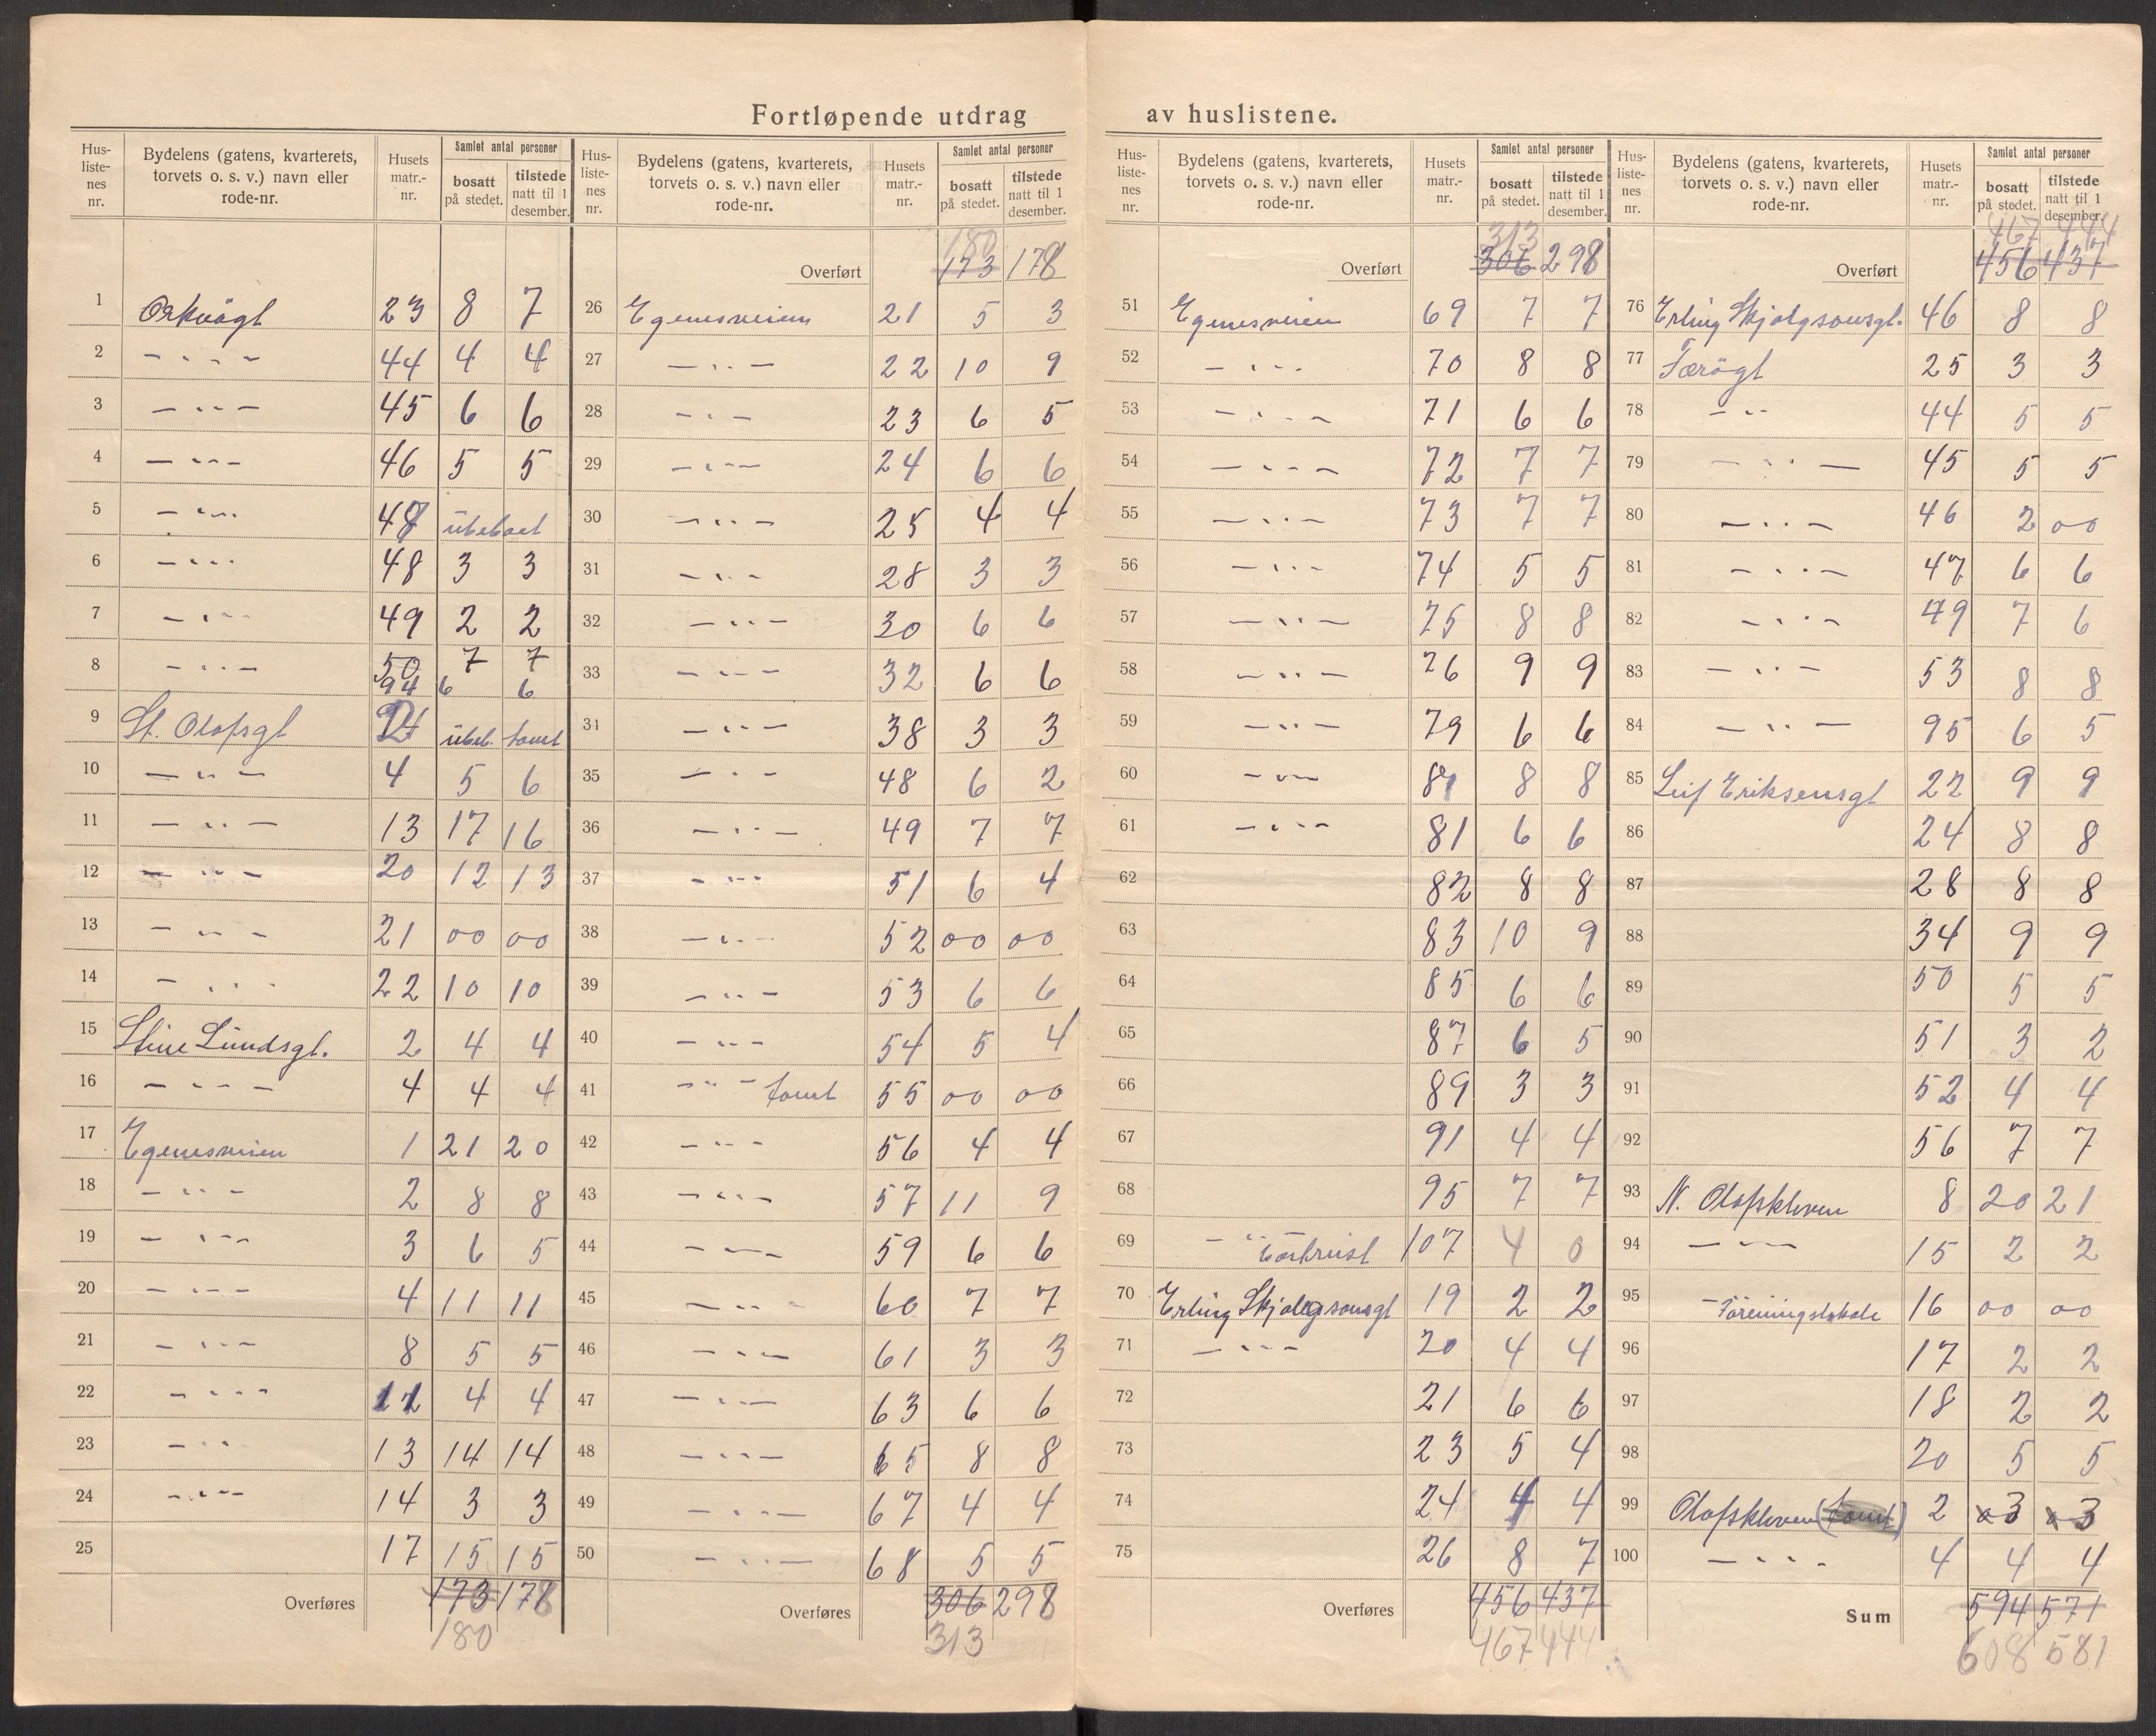 Fortløpende utdrag av huslistene.
Hus-liste-nes nr. | Bydelens (gatens, kvarterets, torvets o. s. v.) navn eller rode-nr. | Husets matr.-nr. | Samlet antal personer | bosatt på stedet. | tilstede natt til 1 desember.
1 Orknögt 23 8 7
2 — " — 44 4 4
3 — " — 45 6 6
4 — " — 46 5 5
5 — " — 47 übeboet
6 — " — 48 3 3
7 — " — 49 2 2
8 — " — 50 7 7
94 6 6
9 St. Olafsgt übeb. tomt
10 — " — 4 5 6
11 — " — 13 17 16
12 — " — 20 12 13
13 — " — 21 00 00
14 — " — 22 10 10
15 Stine Lundsgt. 2 4 4
16 — " — 4 4 4
17 Egenesveien 1 21 20
18 — " — 2 8 8
19 — " — 3 6 5
20 — " — 4 11 11
21 — " — 8 5 5
22 — " — 12 4 4
23 — " — 13 14 14
24 — " — 14 3 3
25 17 15 15
Overføres 173 178
180
Hus-liste-nes nr. | Bydelens (gatens, kvarterets, torvets o. s. v.) navn eller rode-nr. | Husets matr.-nr. | Samlet antal personer | bosatt på stedet. | tilstede natt til 1 desember.
180
Overført 173 178
26 Egenesveien 21 5 3
27 — " — 22 10 9
28 — " — 23 6 5
29 — " — 24 6 6
30 — " — 25 4 4
31 — " — 28 3 3
32 — " — 30 6 6
33 — " — 32 6 6
34 — " — 38 3 3
35 — " — 48 6 2
36 — " — 49 7 7
37 — " — 51 6 4
38 — " — 52 00 00
39 — " — 53 6 6
40 — " — 54 5 4
41 — " — tomt 55 00 00
42 — " — 56 4 4
43 — " — 57 11 9
44 — " — 59 6 6
45 — " — 60 7 7
46 — " — 61 3 3
47 — " — 63 6 6
48 — " — 65 8 8
49 — " — 67 4 4
50 — " — 68 5 5
Overføres 306 298
313
Hus-liste-nes nr. | Bydelens (gatens, kvarterets, torvets o. s. v.) navn eller rode-nr. | Husets matr.-nr. | Samlet antal personer | bosatt på stedet. | tilstede natt til 1 desember.
313
Overført 306 298
51 Egenesveien 69 7 7
52 — " — 70 8 8
53 — " — 71 6 6
54 — " — 72 7 7
55 — " — 73 7 7
56 — " — 74 5 5
57 — " — 75 8 8
58 — " — 76 9 9
59 — " — 79 6 6
60 — " — 8 8
61 — " — 81 6 6
62 82 8 8
63 83 10 9
64 85 6 6
65 87 6 5
66 89 3 3
67 91 4 4
68 95 7 7
69 — " 107 4 0
70 Erling Skjalgsonsgt 19 2 2
71 — " — 20 4 4
72 21 6 6
73 23 5 4
74 24 4 4
75 26 8 7
Overføres 456 437
467 444
Hus-liste-nes nr. | Bydelens (gatens, kvarterets, torvets o. s. v.) navn eller rode-nr. | Husets matr.-nr. | Samlet antal personer | bosatt på stedet. | tilstede natt til 1 desember.
467 444
Overført 456 437
76 Erling Skjalgsonsgt. 46 8 8
77 Færögt 25 3 3
78 — " 44 5 5
79 — " — 45 5 5
80 — " — 46 2 00
81 — " — 47 6 6
82 — " — 49 7 6
83 — " — 53 8 8
84 — " — 95 6 5
85 Leif Eriksensgt 22 9 9
86 24 8 8
87 28 8 8
88 34 9 9
89 50 5 5
90 51 3 2
91 52 4 4
92 56 7 7
93 N. Olafskleven 8 20 21
94 — " — 15 2 2
95 — Foreningslokale 16 00 00
96 17 2 2
97 18 2 2
98 20 5 5
99 Olafskleven (tomt) 2 3 3
100 — " — 4 4 4
Sum 594 571
608 581